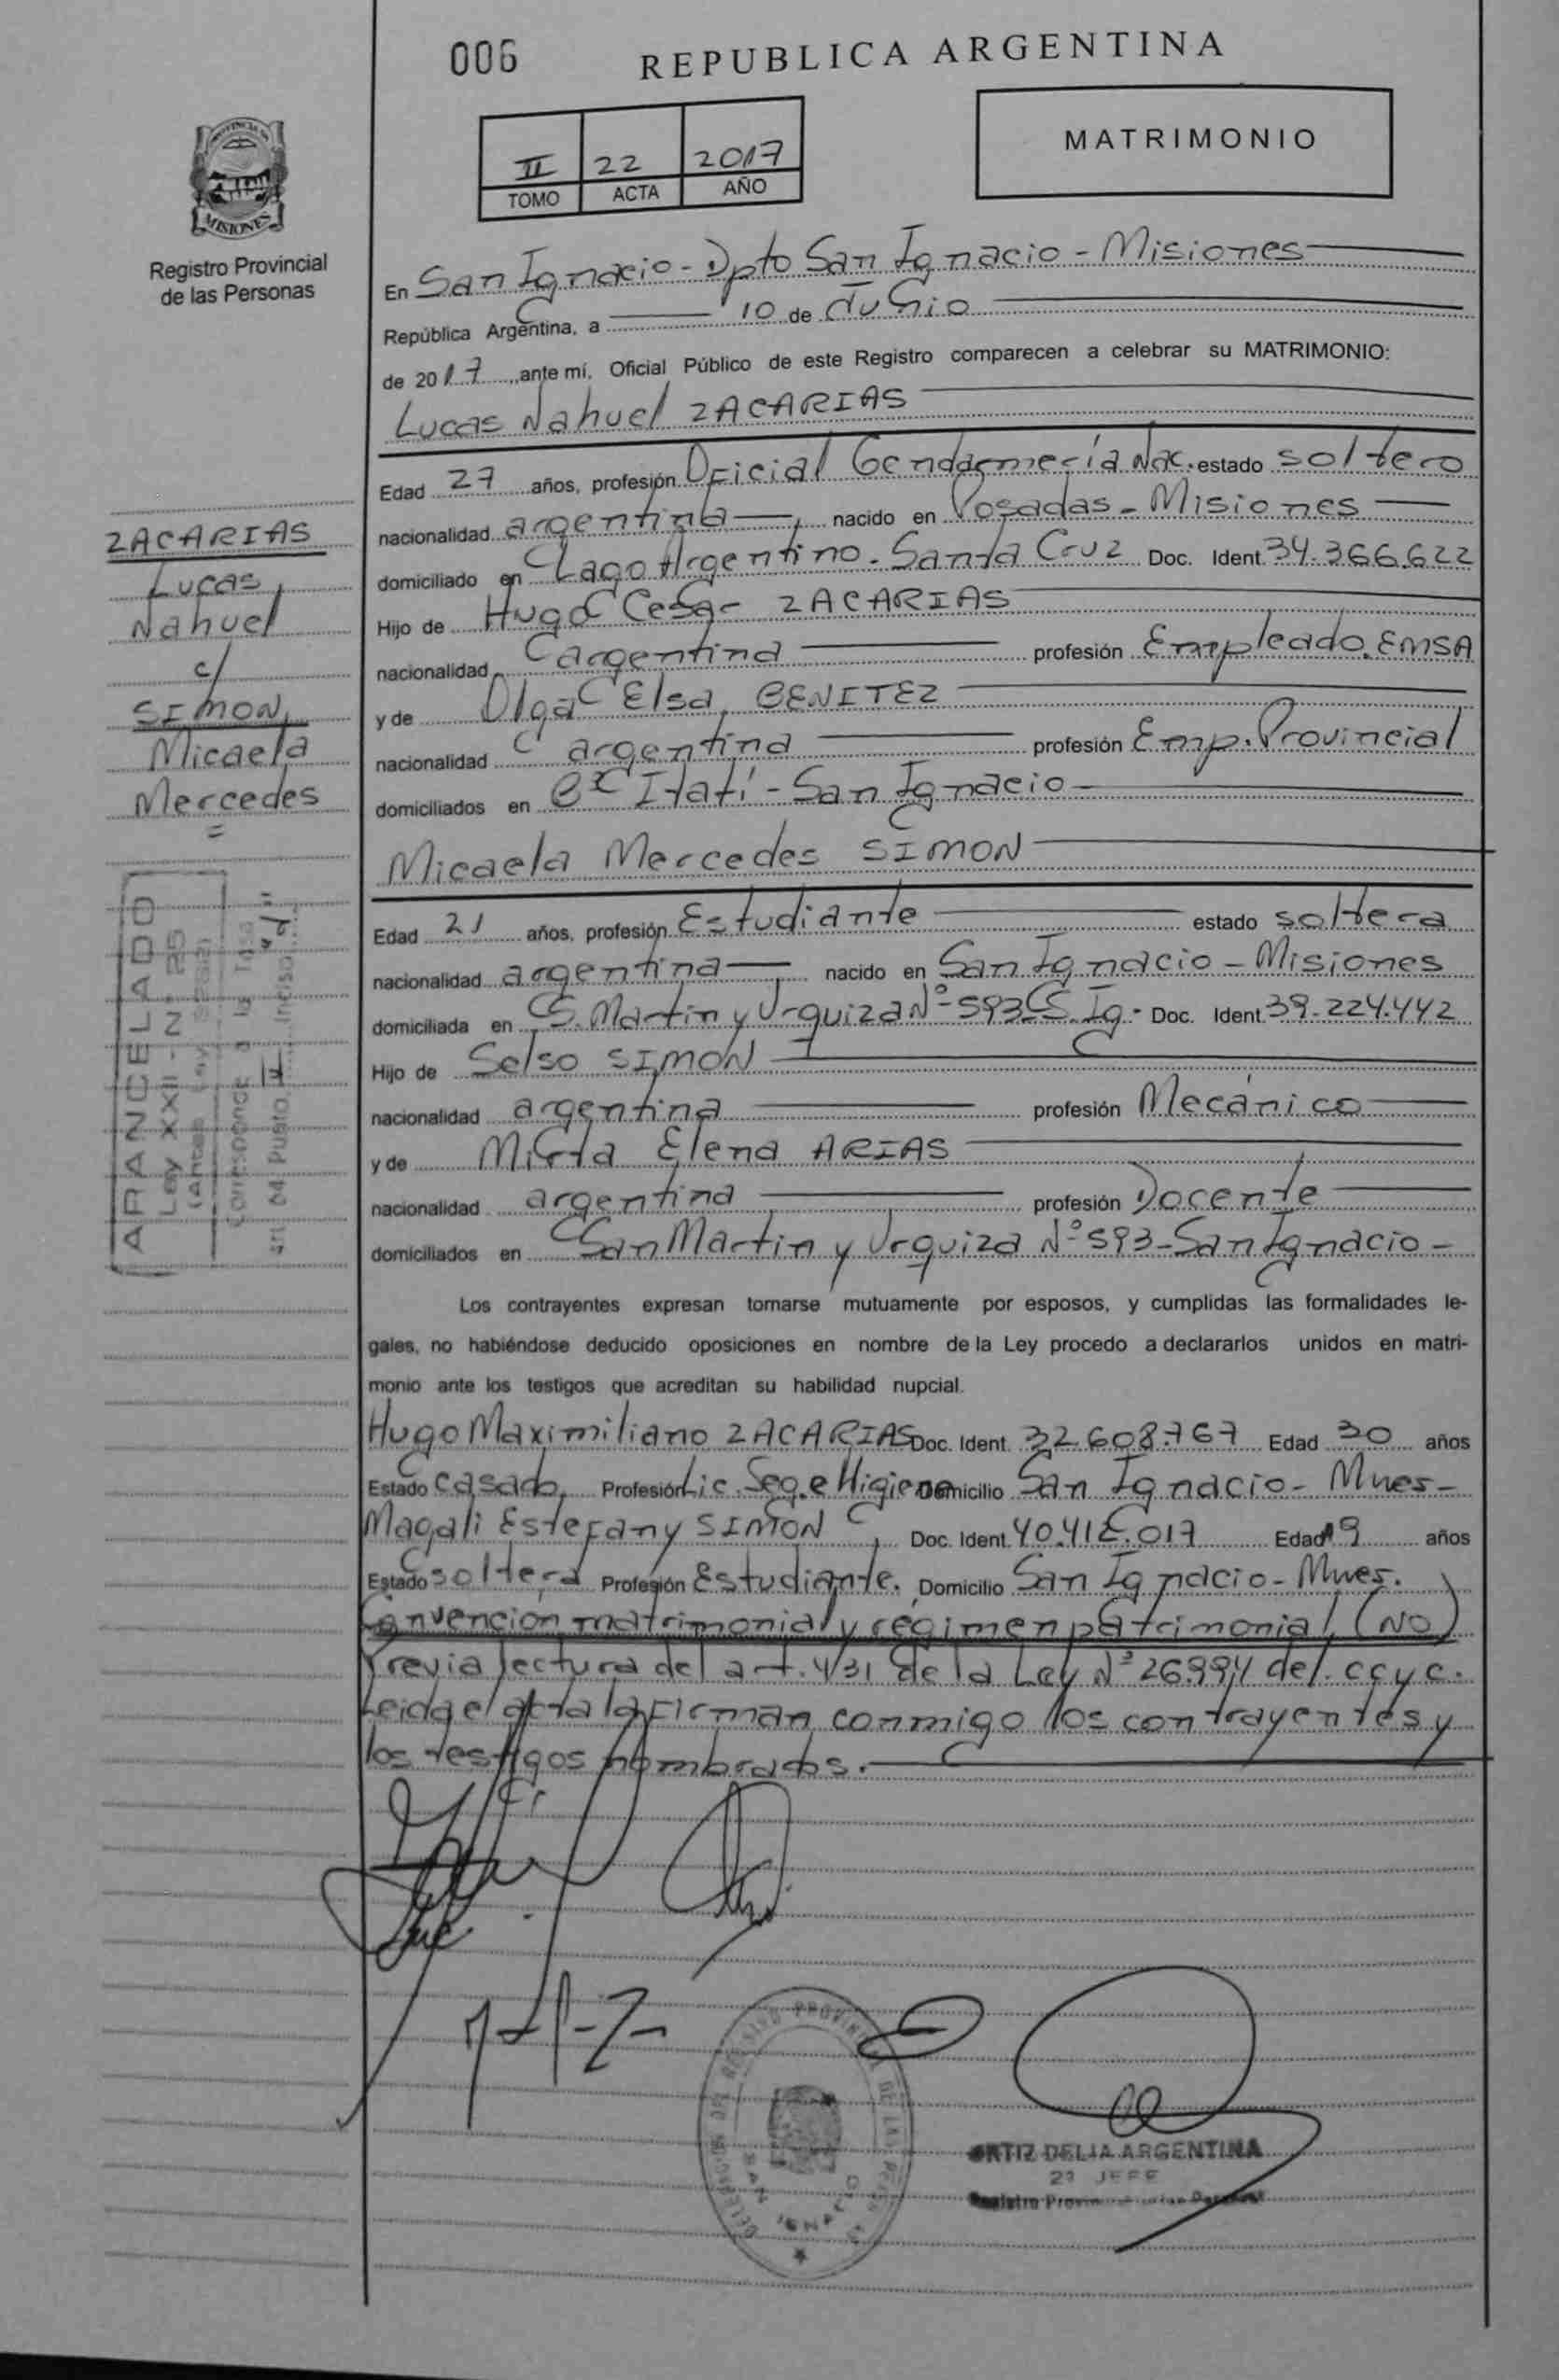 006
REPUBLICA ARGENTINA
II 22 2017
TOMO ACTA AÑO
MATRIMONIO
PROVINCIA DE
MISIONES
Registro Provincial
de las Personas
En San Ignacio - Dpto San Ignacio - Misiones
República Argentina, a 10 de Julio
de 2017, ante mí, Oficial Público de este Registro comparecen a celebrar su MATRIMONIO:
Lucas Nahuel ZACARIAS
Edad 27 años, profesión Oficial Gendarmería Nac. estado soltero
nacionalidad argentina, nacido en Posadas - Misiones
domiciliado en Lago Argentino - Santa Cruz Doc. Ident. 34.366.622
Hijo de Hugo Cesar ZACARIAS
nacionalidad argentina profesión Empleado EMSA
y de Olga Elsa BENITEZ
nacionalidad argentina profesión Emp. Provincial
domiciliados en Bº Itatí - San Ignacio
Micaela Mercedes SIMON
Edad 21 años, profesión Estudiante estado soltera
nacionalidad argentina, nacido en San Ignacio - Misiones
domiciliada en S. Martin y Urquiza Nº 593 S. Ig. Doc. Ident. 39.224.442
Hijo de Selso SIMON
nacionalidad argentina profesión Mecánico
y de Mirta Elena ARIAS
nacionalidad argentina profesión Docente
domiciliados en San Martin y Urquiza Nº 593 - San Ignacio -
Los contrayentes expresan tomarse mutuamente por esposos, y cumplidas las formalidades le-
gales, no habiéndose deducido oposiciones en nombre de la Ley procedo a declararlos unidos en matri-
monio ante los testigos que acreditan su habilidad nupcial.
Hugo Maximiliano ZACARIAS Doc. Ident. 32.608.767 Edad 30 años
Estado casado, Profesión Lic. Seg. e Higiene Domicilio San Ignacio - Mnes -
Magali Estefany SIMON, Doc. Ident. Edad 19 años
Estado soltera Profesión Estudiante. Domicilio San Ignacio - Mnes.
Convención matrimonial y régimen patrimonial, (NO)
Previa lectura del art. 431 de la Ley Nº 26.994 del CCyC.
Leida el acta la firman conmigo los contrayentes y
los testigos nombrados.
ZACARIAS
Lucas
Nahuel
c/
SIMON,
Micaela
Mercedes
=
ARANCELADO
Ley XXII - Nº 25
(Antes Ley
corresponde a la Tasa
Art. 04 Punto II Inciso
ORTIZ DELIA ARGENTINA
2º JEFE
Registro